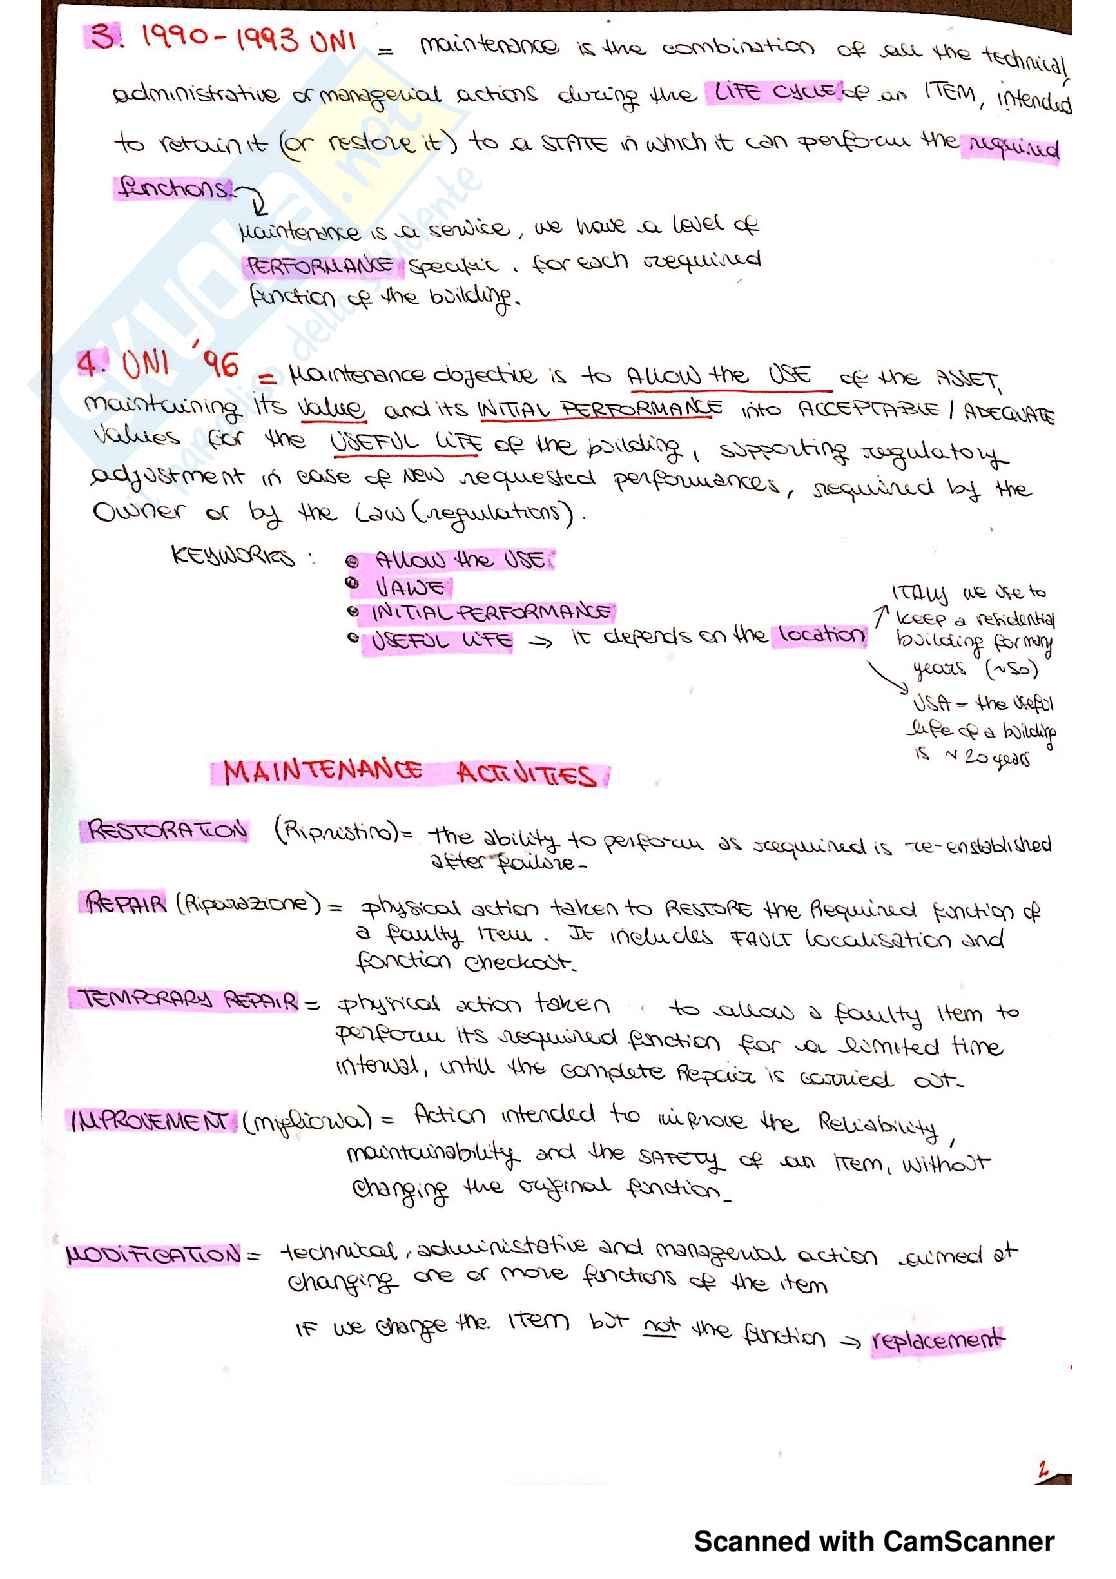 3. 1990-1993 UNI = maintenance is the combination of all the technical,
administrative or managerial actions during the LIFE CYCLE of an ITEM, intended
to retain it (or restore it) to a STATE in which it can perform the required
functions.
Maintenance is a service, we have a level of
PERFORMANCE specific. for each required
function of the building.
4. UNI '96 = Maintenance objective is to ALLOW the USE of the ASSET,
maintaining its value and its INITIAL PERFORMANCE into ACCEPTABLE / ADEQUATE
values for the USEFUL LIFE of the building, supporting regulatory
adjustment in case of NEW requested performances, required by the
Owner or by the Law (regulations).
KEYWORKS :
• ALLOW the USE
• VALUE
• INITIAL PERFORMANCE
• USEFUL LIFE → it depends on the location
ITALY we use to
KEEP a residential
building for many
years (~50)
USA - the useful
life of a building
is ~ 20 years
MAINTENANCE ACTIVITIES
RESTORATION (Ripristino) = the ability to perform as required is re-enstablished
after failure-
REPAIR (Riparazione) = physical action taken to RESTORE the Required function of
a faulty ITEM. It includes FAULT localisation and
fonction checkout.
TEMPORARY REPAIR = physical action taken to allow a faulty item to
perform its required function for a limited time
interval, untill the complete Repair is carried out-
IMPROVEMENT (miglioria) = Action intended to improve the Reliability,
maintainability and the SAFETY of an ITEM, without
changing the original function-
MODIFICATION = technical, administrative and managerial action aimed at
changing one or more functions of the item
IF we change the ITEM but not the function → replacement
2
SKYOLA.net
dello studente
Scanned with CamScanner